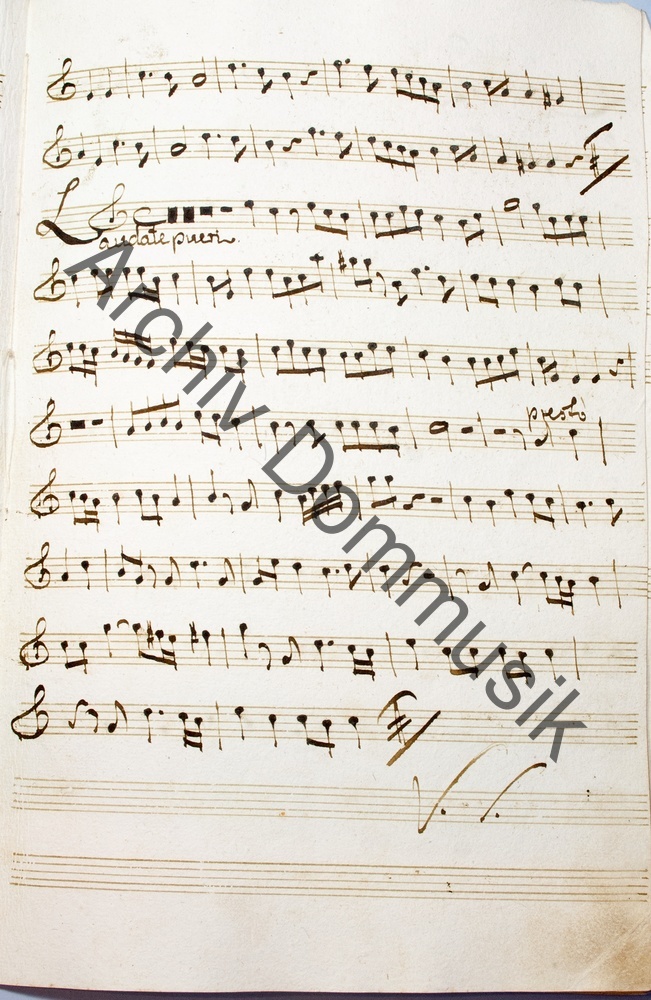 Laudate pueri.
presto
V. S.
Archiv Dommusik